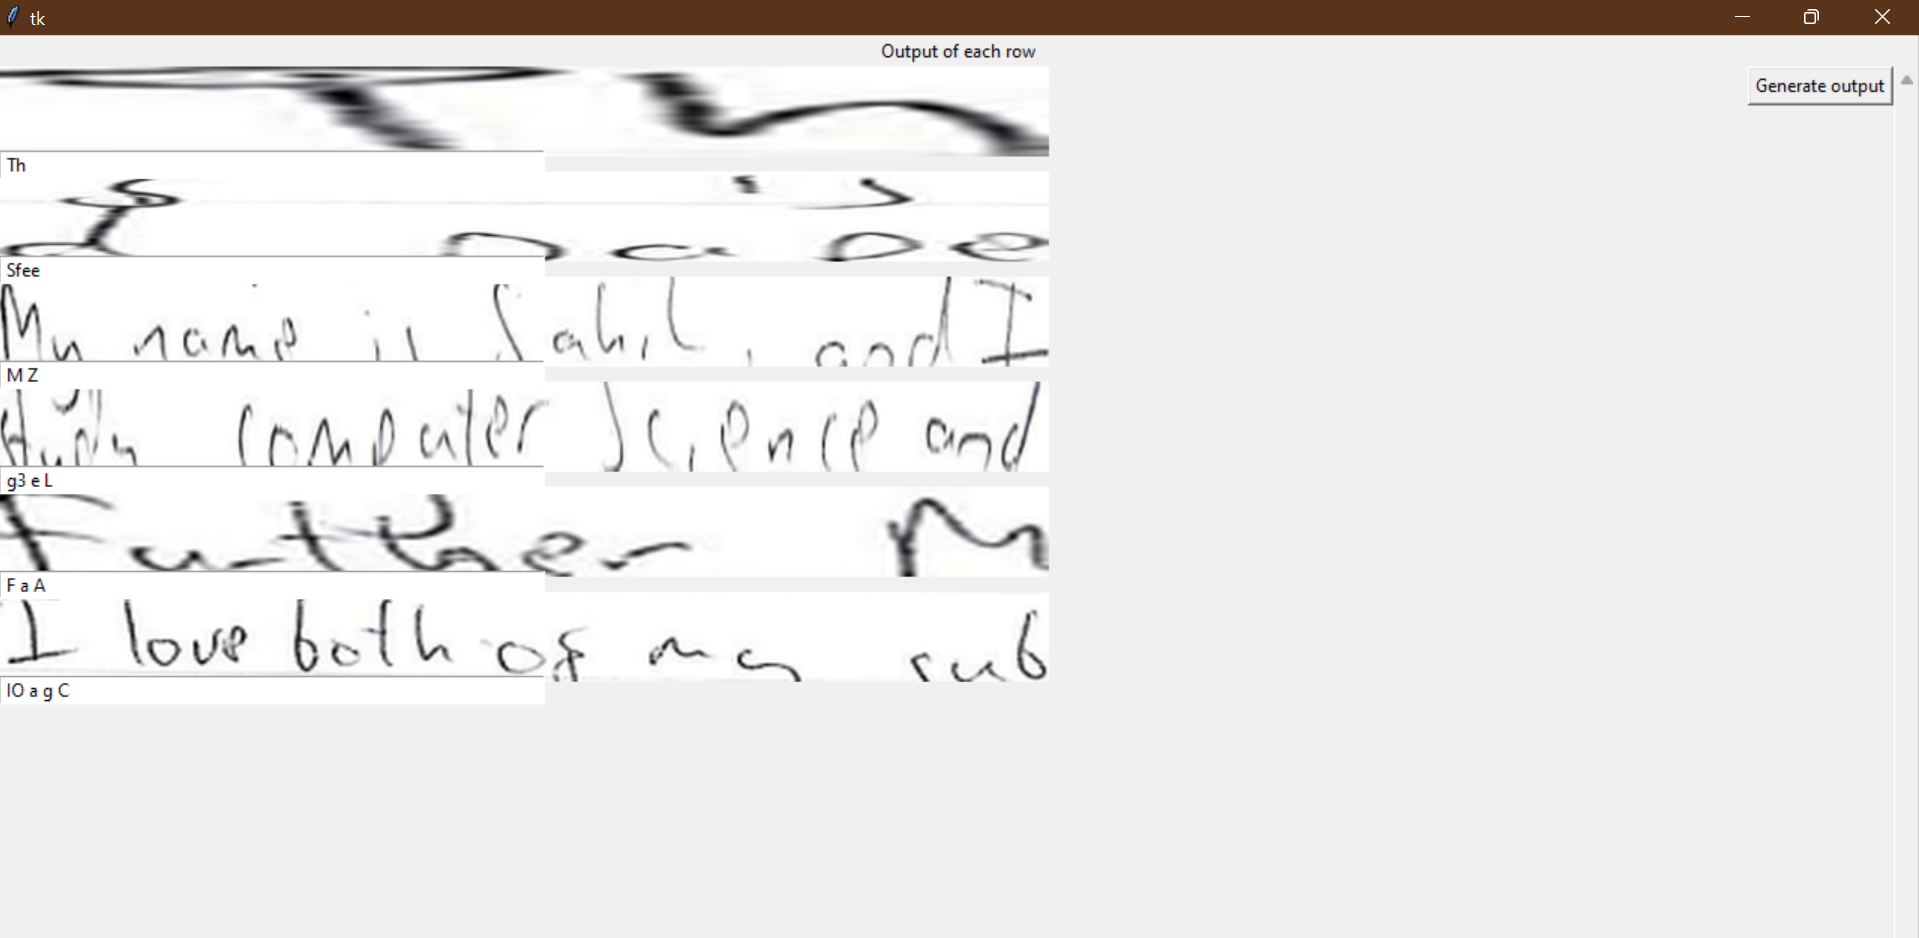 tk
Output of each row
Generate output
Th
Th
Sfee
My name is Sahil, and I
M Z
study computer Science and
g3 e L
Further M
F a A
I love both of my sub
IO a g C